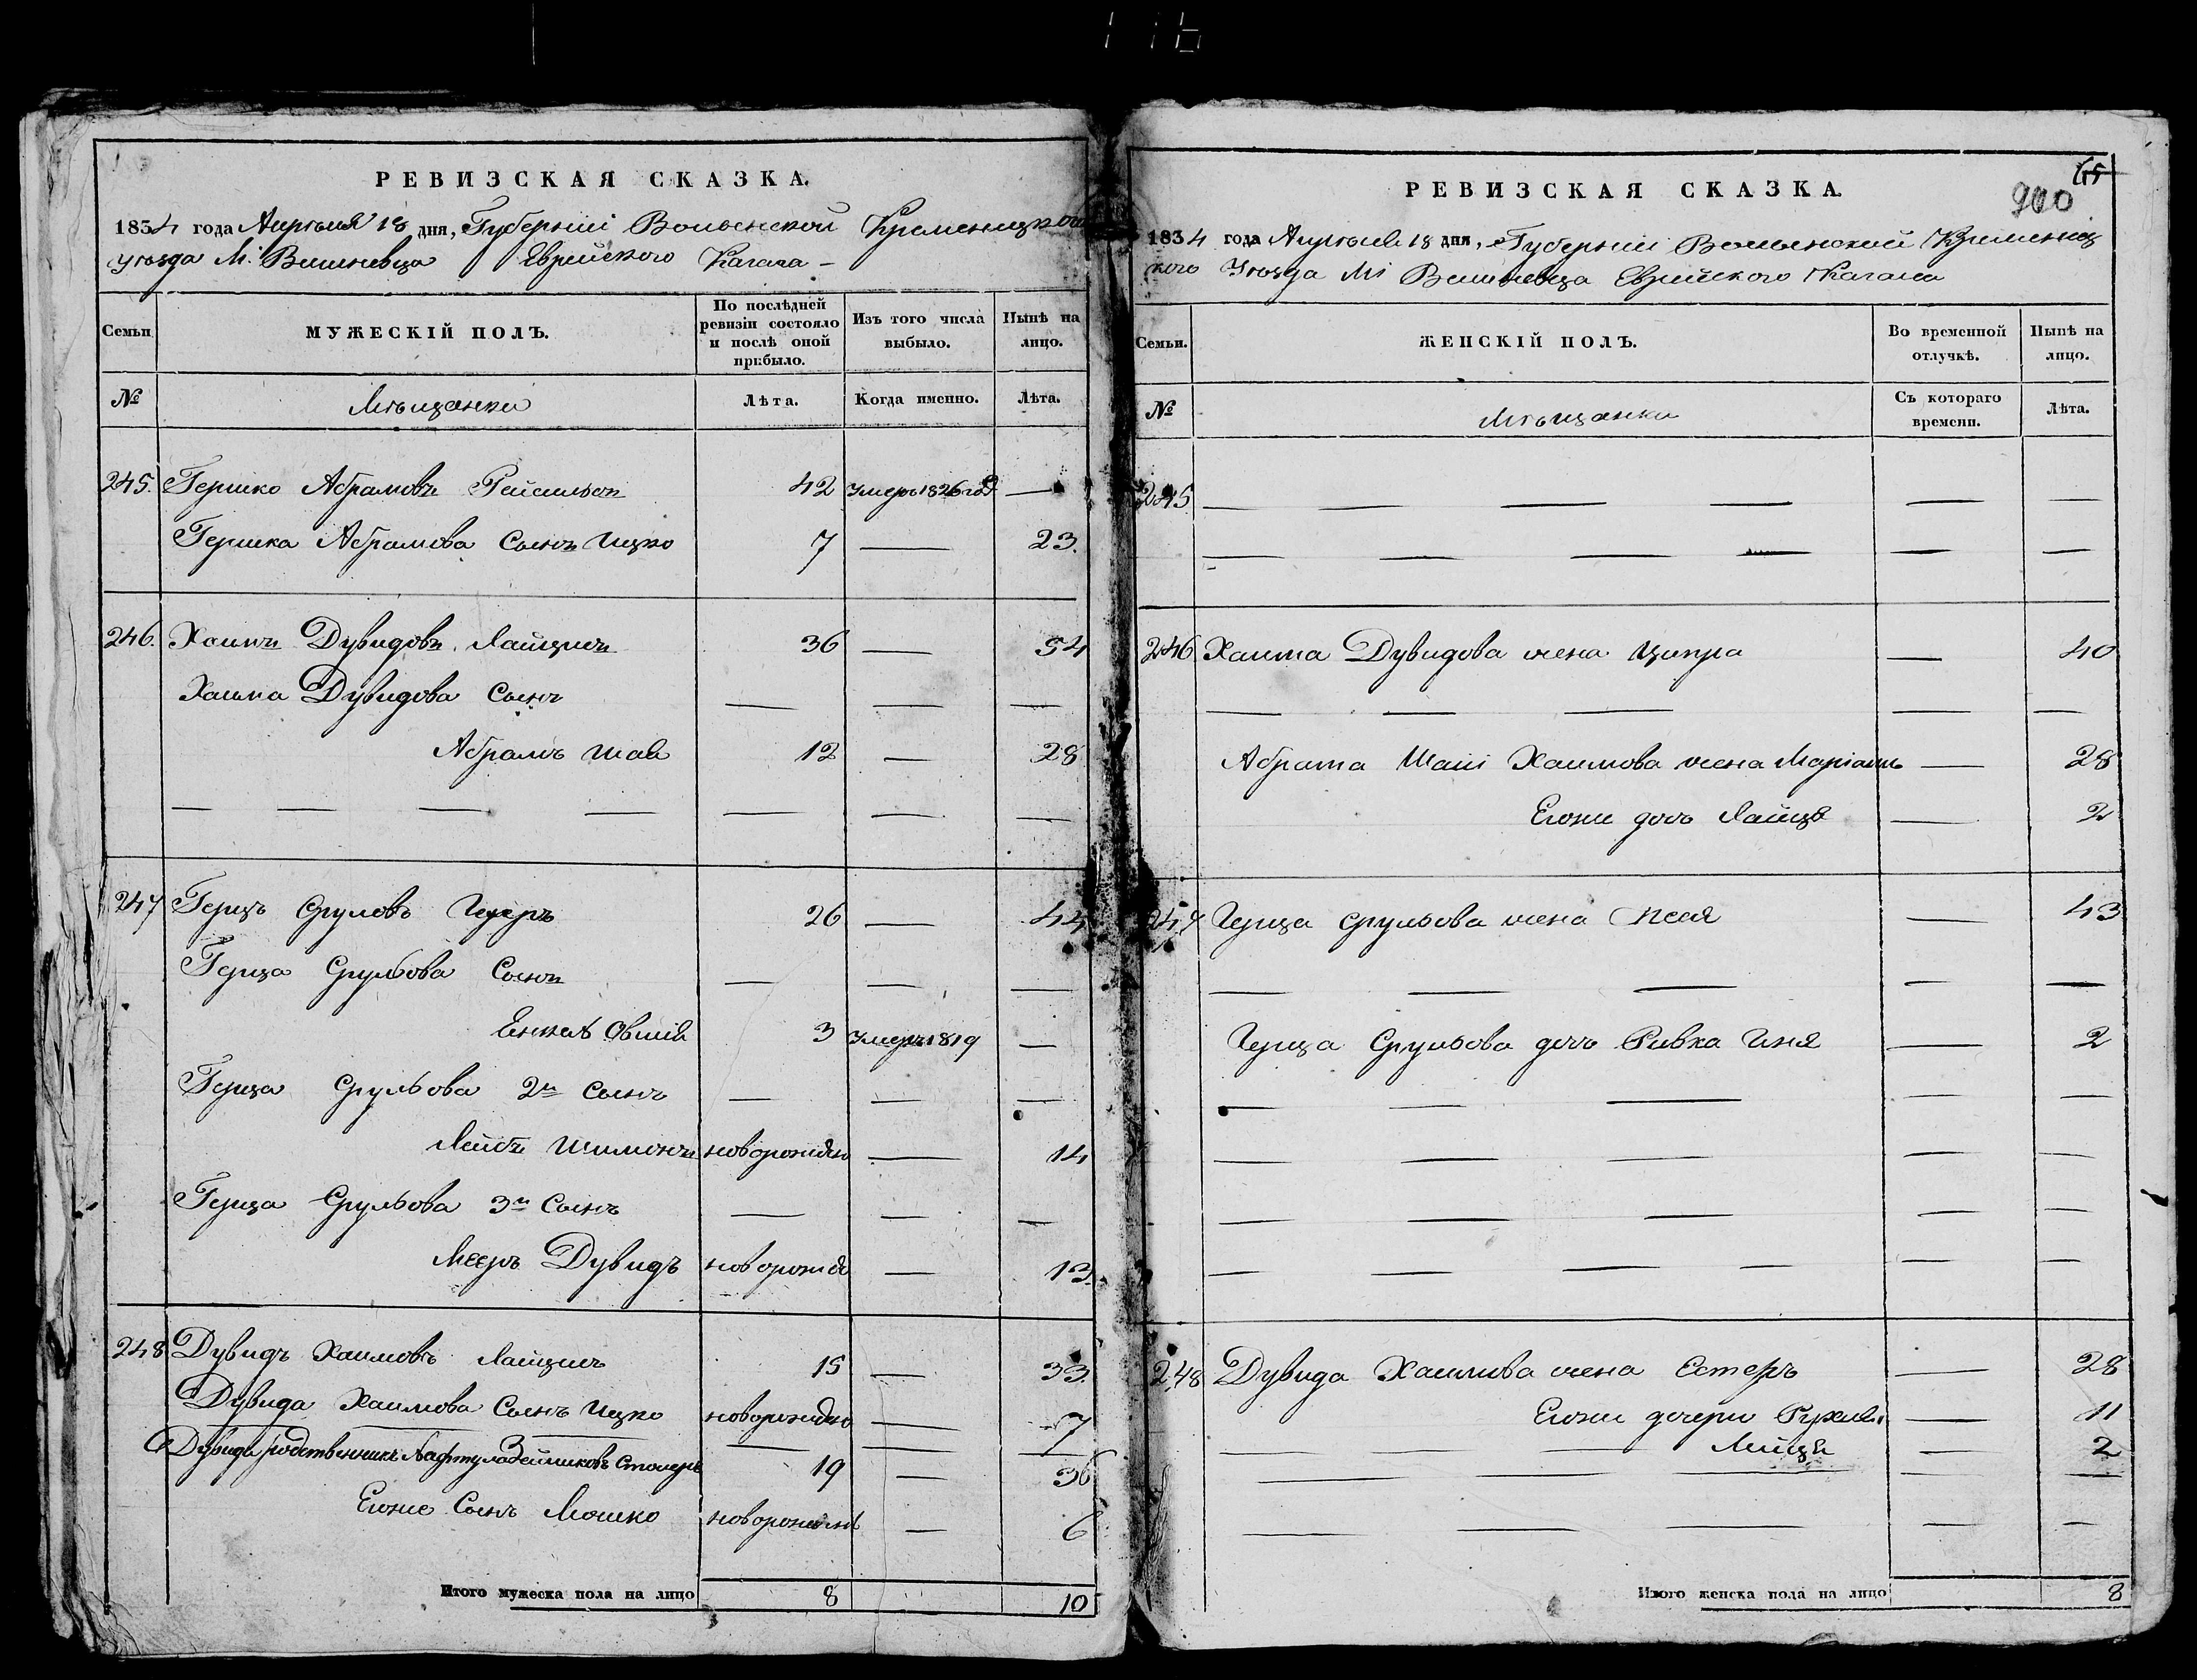 РЕВИЗСКАЯ СКАЗКА.
1834 года Апреля 18 дня, Губерніи Волынской Кременецкого
уезда М. Вишневца Еврейского Кагала –
Семьи
МУЖЕСКІЙ ПОЛЪ.
По послѣдней ревизіи состояло и послѣ оной прибыло.
Изъ того числа выбыло.
Нынѣ на лицо.
№
Мѣщанки
Лѣта.
Когда именно.
Лѣта.
245. Гершко Абрамовъ 42 Умеръ 1826 год —
Гершка Абрамова Сынъ Ицко 7 — 23.
246. Хаимъ Дувидовъ Лайщикъ 36 — 54
Хаима Дувидова Сынъ — — —
Абрамъ Шая 12 — 28
— — — — — — —
247 Герцъ Сруловъ 26 — 44
Герца Срульова Сынъ — — —
Енкель Овшія 3 Умеръ 1819 —
Герца Срульова 2й Сынъ — — —
Лейбъ Шимонъ новорожден — 14
Герца Срульова 3й Сынъ — — —
Мееръ Дувидъ новорожде — 13.
248 Дувидъ Хаимовъ Лайщикъ 15 — 33.
Дувида Хаимова Сынъ Ицко новорожден — 7
Дувида родственникъ Нафтула Столеръ 19 — 36
Егоже Сынъ Мошко новорожден — 6
Итого мужеска пола на лицо 8 10
65
900
РЕВИЗСКАЯ СКАЗКА.
1834 года Апреля 18 дня, Губерніи Волынской Кременец
кого Уезда М. Вишневца Еврейского Кагала
Семьи.
ЖЕНСКІЙ ПОЛЪ.
Во временной отлучкѣ.
Нынѣ на лицо.
№
Мѣщанки
Съ котораго времени.
Лѣта.
245 — — — — — —
— — — — — —
246 Хаима Дувидова жена Ципра — 40
— — — — —
Абрама Шаіи Хаимова жена Маріамъ — 28
Егоже дочь Лайця — 2
247 Герца Срульова жена Песя — 43
— — — — —
Герца Срульова дочь Ривка Гиня — 2
— — — — —
— — — — —
— — — — —
— — — — —
248 Дувида Хаимова жена Естеръ — 28
Егоже дочери Рухля — 11
— — 2
— — — — —
— — — — —
Итого женска пола на лицо 8